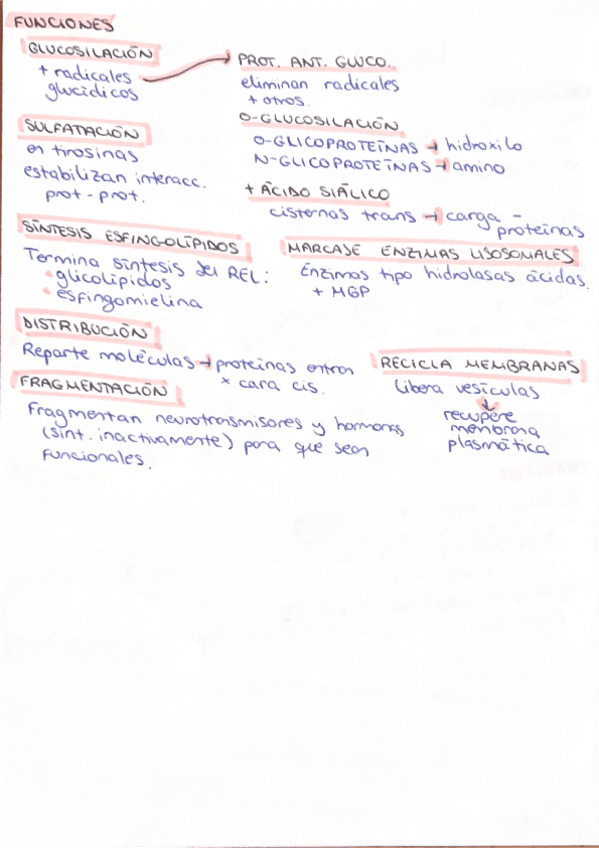 FUNCIONES
GLUCOSILACIÓN
+ radicales
glucídicos
PROT. ANT. GLUCO.
eliminan radicales
+ otros.
O-GLUCOSILACIÓN
O-GLICOPROTEÍNAS → hidroxilo
N-GLICOPROTEÍNAS → amino
+ ÁCIDO SIÁLICO
cisternas trans → carga -
proteínas
SULFATACIÓN
en tirosinas
estabilizan interacc.
prot - prot.
SÍNTESIS ESFINGOLÍPIDOS
Termina síntesis del REL:
• glicolípidos
• esfingomielina
MARCAJE ENZIMAS LISOSOMALES
Enzimas tipo hidrolasas ácidas.
+ MGP
DISTRIBUCIÓN
Reparte moléculas → proteínas entran
x cara cis.
RECICLA MEMBRANAS
Libera vesículas
↓
recupere
membrana
plasmática
FRAGMENTACIÓN
Fragmentan neurotrasmisores y hormonas
(sint. inactivamente) para que sean
funcionales.